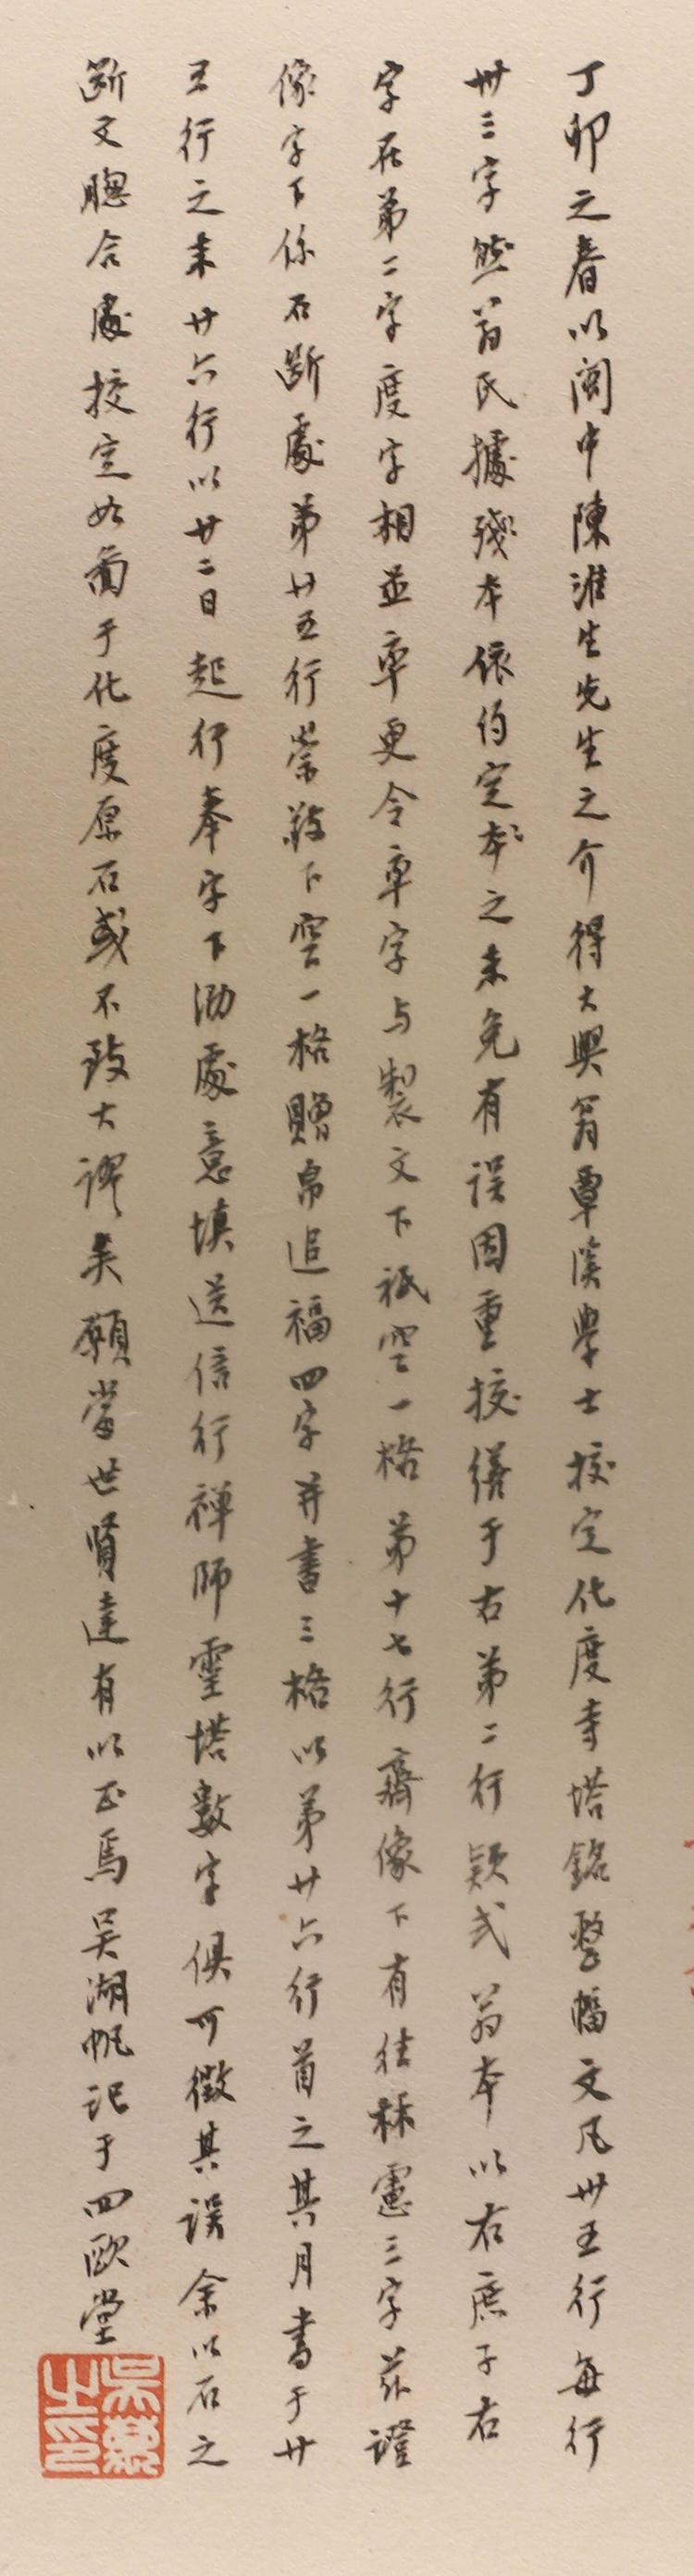 丁卯之春以閩中陳淮生先生之介得大興翁覃溪學士挍定化度寺塔銘整幅文凡卅五行每行
卅三字然翁氏據殘本依約定本之未免有誤因重挍繕于右第二行款式翁本以右庶子右
字在第二字度字相並率更令率字与製文下祇空一格第十七行齋像下有往林慮三字茲證
像字下係石斷處第廿五行崇敬下空一格贈帛追福四字并書三格以第廿六行首之其月書于廿
五行之末廿六行以廿二日起行奉字下泐處意填送信行禅師靈塔數字俱可徵其誤余以石之
斷文聰合處挍定如圖于化度原石或不致大謬矣願當世賢達有以正焉吳湖帆記于四歐堂
吳萬之印